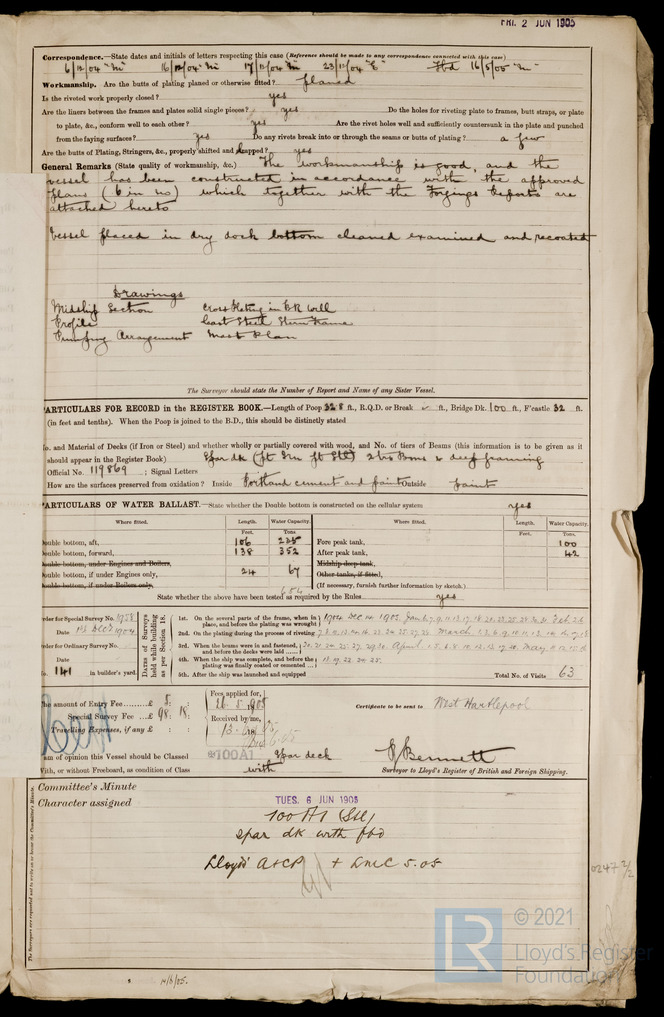 FRI. 2 JUN 1905
Correspondence.—State dates and initials of letters respecting this case (Reference should be made to any correspondence connected with this case)
6/12/04 "M" 16/12/04 "M" 17/11/04 "M" 23/11/04 "E" Fbd 16/5/05 "M"
Workmanship. Are the butts of plating planed or otherwise fitted? planed
Is the riveted work properly closed? yes
Are the liners between the frames and plates solid single pieces? yes Do the holes for riveting plate to frames, butt straps, or plate
to plate, &c., conform well to each other? yes Are the rivet holes well and sufficiently countersunk in the plate and punched
from the faying surfaces? yes Do any rivets break into or through the seams or butts of plating? a few
Are the butts of Plating, Stringers, &c., properly shifted and strapped? yes
General Remarks (State quality of workmanship, &c.) The workmanship is good, and the
vessel has been constructed in accordance with the approved
plans (6 in no) which together with the Forgings Reports are
attached hereto
Vessel placed in dry dock bottom cleaned examined and recoated
Drawings
Midship Section Cross Keting in BK Well
Profile Cast Steel Stern Frame
Pumping Arrangement Mast Plan
The Surveyor should state the Number of Report and Name of any Sister Vessel.
PARTICULARS FOR RECORD in the REGISTER BOOK.—Length of Poop 32.8 ft., R.Q.D. or Break ft., Bridge Dk. 100 ft., F'castle 32 ft.
(in feet and tenths). When the Poop is joined to the B.D., this should be distinctly stated
No. and Material of Decks (if Iron or Steel) and whether wholly or partially covered with wood, and No. of tiers of Beams (this information is to be given as it
should appear in the Register Book) Spar dk
Official No. 119869 ; Signal Letters
How are the surfaces preserved from oxidation? Inside Portland cement and paint Outside paint
PARTICULARS OF WATER BALLAST.—State whether the Double bottom is constructed on the cellular system yes
Where fitted. Length. Water Capacity. Where fitted. Length. Water Capacity.
Feet. Tons. Feet. Tons.
Double bottom, aft, 106 235 Fore peak tank, 100
Double bottom, forward, 138 352 After peak tank, 42
Double bottom, under Engines and Boilers, Midship deep tank,
Double bottom, if under Engines only, 24 67 Other tanks, if fitted,
Double bottom, if under Boilers only, 654 (If necessary, furnish further information by sketch.)
State whether the above have been tested as required by the Rules yes
Order for Special Survey No. 1958
Date 1st Dec 1904
Order for Ordinary Survey No.
Date
No. 141 in builder's yard.
Dates of Surveys held while building as per Section 18.
1st. On the several parts of the frame, when in place, and before the plating was wrought
2nd. On the plating during the process of riveting
3rd. When the beams were in and fastened, and before the decks were laid
4th. When the ship was complete, and before the plating was finally coated or cemented
5th. After the ship was launched and equipped Total No. of Visits 63
The amount of Entry Fee £ 5 : : Fees applied for,
Special Survey Fee £ 98 : 18 : 26.5.1905
Travelling Expenses, if any £ : : Received by me,
Certificate to be sent to West Hartlepool
am of opinion this Vessel should be Classed *100A1 Spar deck
With, or without Freeboard, as condition of Class with
J Bennett
Surveyor to Lloyd's Register of British and Foreign Shipping.
Committee's Minute
Character assigned
TUES. 6 JUN 1905
100 A1 (Stl)
Spar dk with fbd
Lloyds' A&CP + LMC 5.05
0247 2/2
14/6/05.
© 2021
LR
Lloyd's Register
Foundation